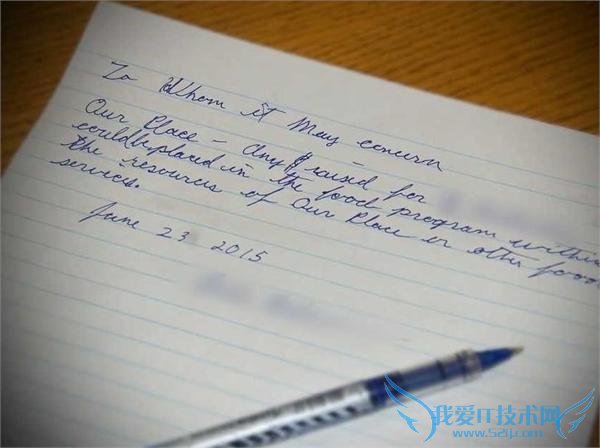 To Whom it May concern
Our Place – Any $ raised for
could be placed in the food program within
the resources of Our Place or other food
services.
June 23 2015
我爱IT技术网
www.52ij.com